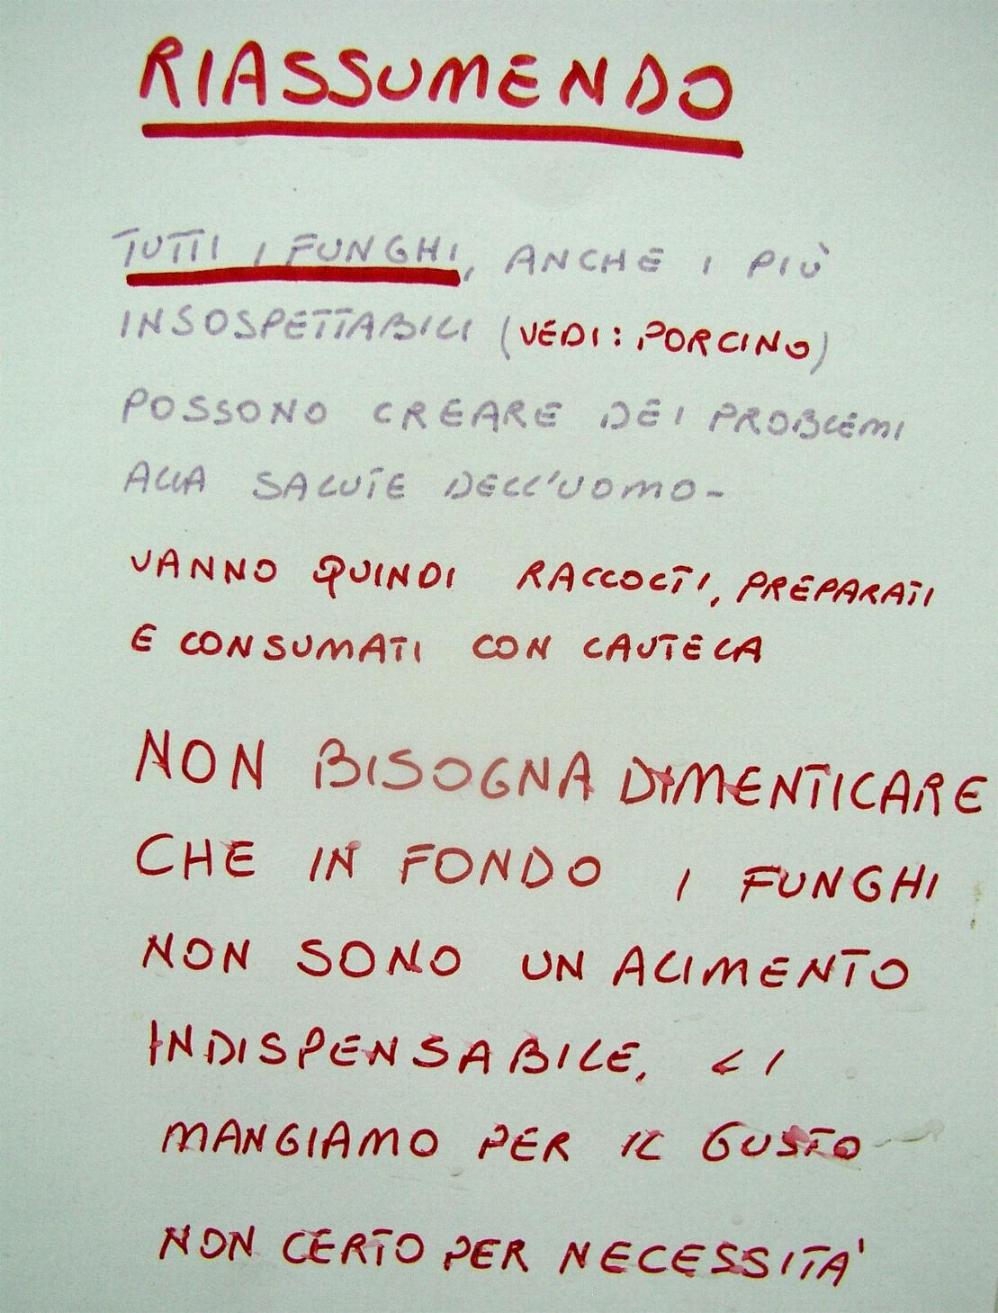 RIASSUMENDO
TUTTI I FUNGHI, ANCHE I PIÙ
INSOSPETTABILI (VEDI: PORCINO)
POSSONO CREARE DEI PROBLEMI
ALLA SALUTE DELL'UOMO-
VANNO QUINDI RACCOLTI, PREPARATI
E CONSUMATI CON CAUTELA
NON BISOGNA DIMENTICARE
CHE IN FONDO I FUNGHI
NON SONO UN ALIMENTO
INDISPENSABILE, LI
MANGIAMO PER IL GUSTO
NON CERTO PER NECESSITA'